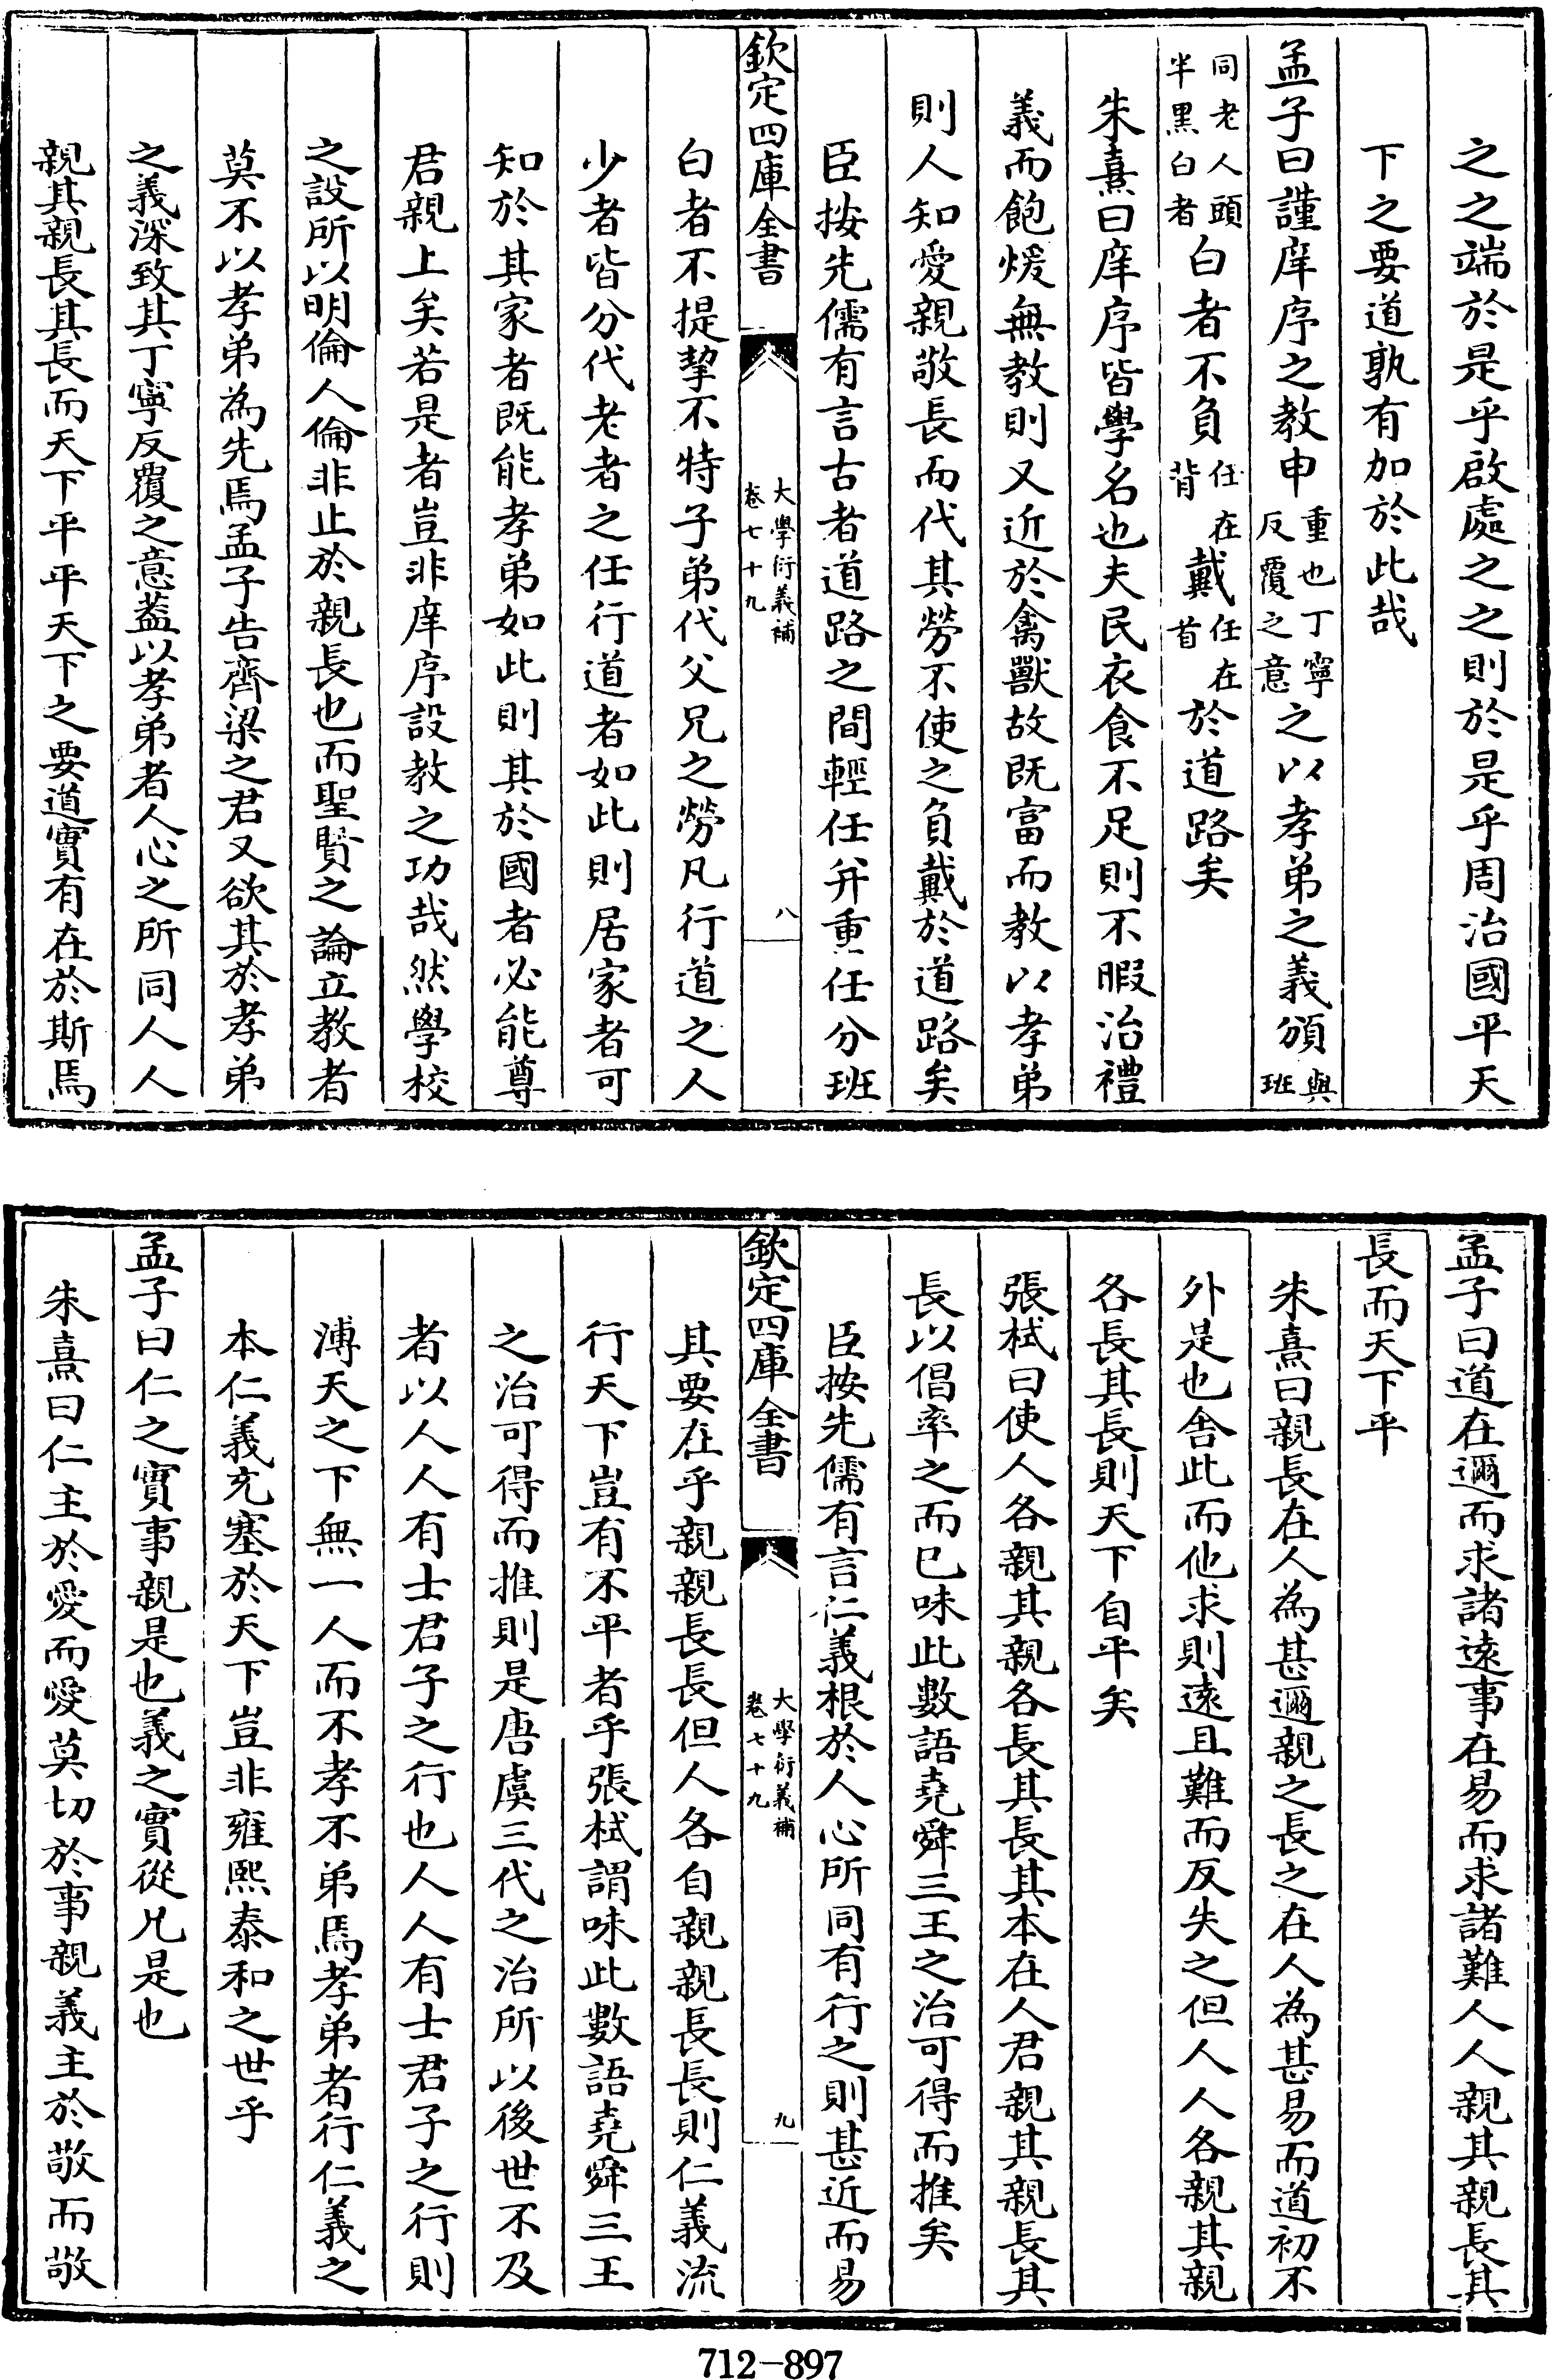 之之端於是乎啟處之之則於是乎周治國平天
下之要道孰有加於此哉
孟子曰謹庠序之教申重也丁寧反覆之意之以孝弟之義頒與班
同老人頭半黑白者白者不負任在背戴任在首於道路矣
朱熹曰庠序皆學名也夫民衣食不足則不暇治禮
義而飽煖無教則又近於禽獸故既富而教以孝弟
則人知愛親敬長而代其勞不使之負戴於道路矣
臣按先儒有言古者道路之間輕任并重任分班
欽定四庫全書
大學衍義補
卷七十九
八
白者不提挈不特子弟代父兄之勞凡行道之人
少者皆分代老者之任行道者如此則居家者可
知於其家者既能孝弟如此則其於國者必能尊
君親上矣若是者豈非庠序設教之功哉然學校
之設所以明倫人倫非止於親長也而聖賢之論立教者
莫不以孝弟為先焉孟子告齊梁之君又欲其於孝弟
之義深致其丁寧反覆之意葢以孝弟者人心之所同人人
親其親長其長而天下平平天下之要道實有在於斯焉
孟子曰道在邇而求諸遠事在易而求諸難人人親其親長其
長而天下平
朱熹曰親長在人為甚邇親之長之在人為甚易而道初不
外是也舍此而他求則遠且難而反失之但人人各親其親
各長其長則天下自平矣
張栻曰使人各親其親各長其長其本在人君親其親長其
長以倡率之而已味此數語堯舜三王之治可得而推矣
臣按先儒有言仁義根於人心所同有行之則甚近而易
欽定四庫全書
大學衍義補
卷七十九
九
其要在乎親親長長但人各自親親長長則仁義流
行天下豈有不平者乎張栻謂味此數語堯舜三王
之治可得而推則是唐虞三代之治所以後世不及
者以人人有士君子之行也人人有士君子之行則
溥天之下無一人而不孝不弟焉孝弟者行仁義之
本仁義充塞於天下豈非雍熙泰和之世乎
孟子曰仁之實事親是也義之實從兄是也
朱熹曰仁主於愛而愛莫切於事親義主於敬而敬
712-897